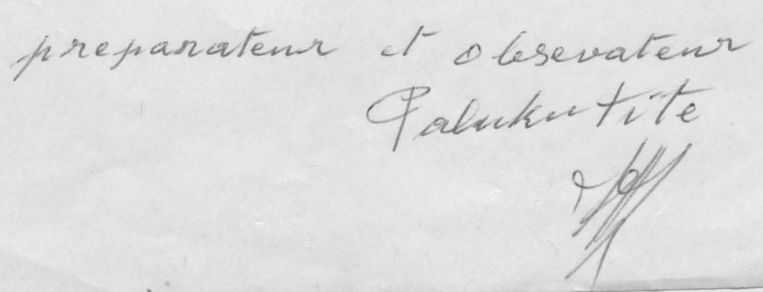 preparateur et obsevateur
Paluku Tite